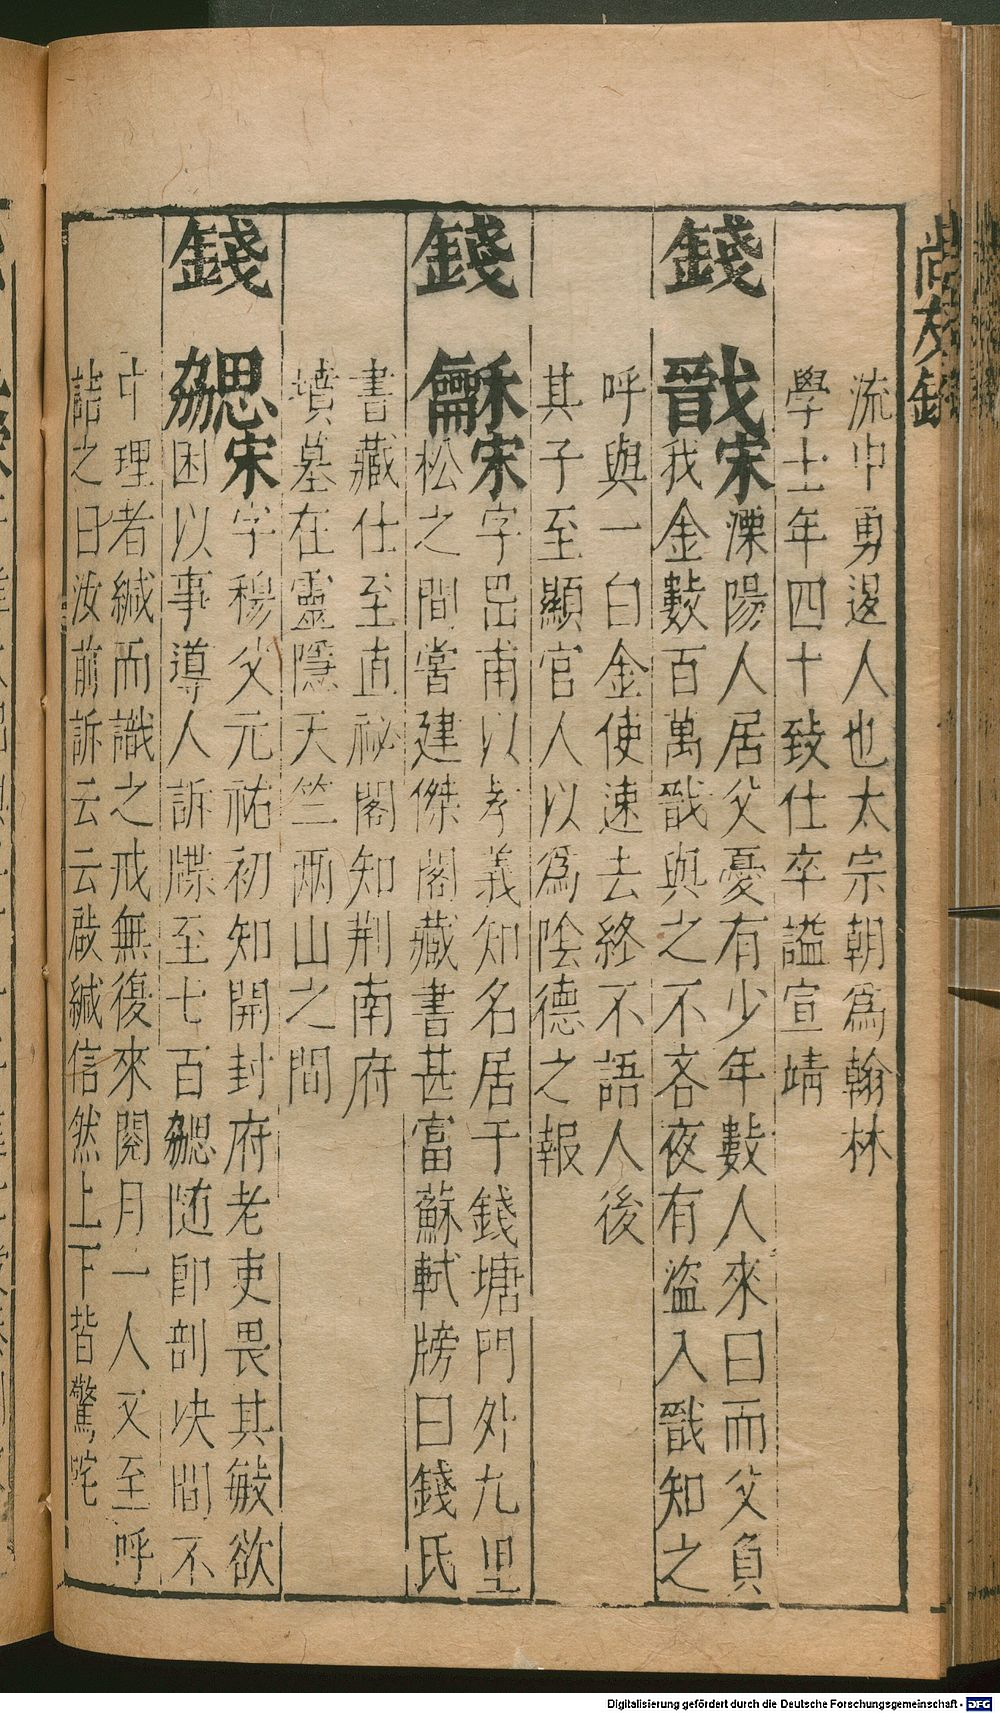 尚友錄
流中勇退人也太宗朝爲翰林
學士年四十致仕卒謚宣靖
錢戩宋溧陽人居父憂有少年數人來曰而父負
我金數百萬戩與之不吝夜有盜入戩知之
呼與一白金使速去終不語人後
其子至顯官人以爲陰德之報
錢龢宋字岊甫以孝義知名居于錢塘門外九里
松之間嘗建傑閣藏書甚富蘇軾牓曰錢氏
書藏仕至直祕閣知荆南府
墳墓在靈隱天竺兩山之間
錢勰宋字穆父元祐初知開封府老吏畏其敏欲
困以事導人訴牒至七百勰随卽剖决間不
中理者緘而識之戒無復來閱月一人又至呼
詰之曰汝前訴云云啟緘信然上下皆驚咤
Digitalisierung gefördert durch die Deutsche Forschungsgemeinschaft - DFG